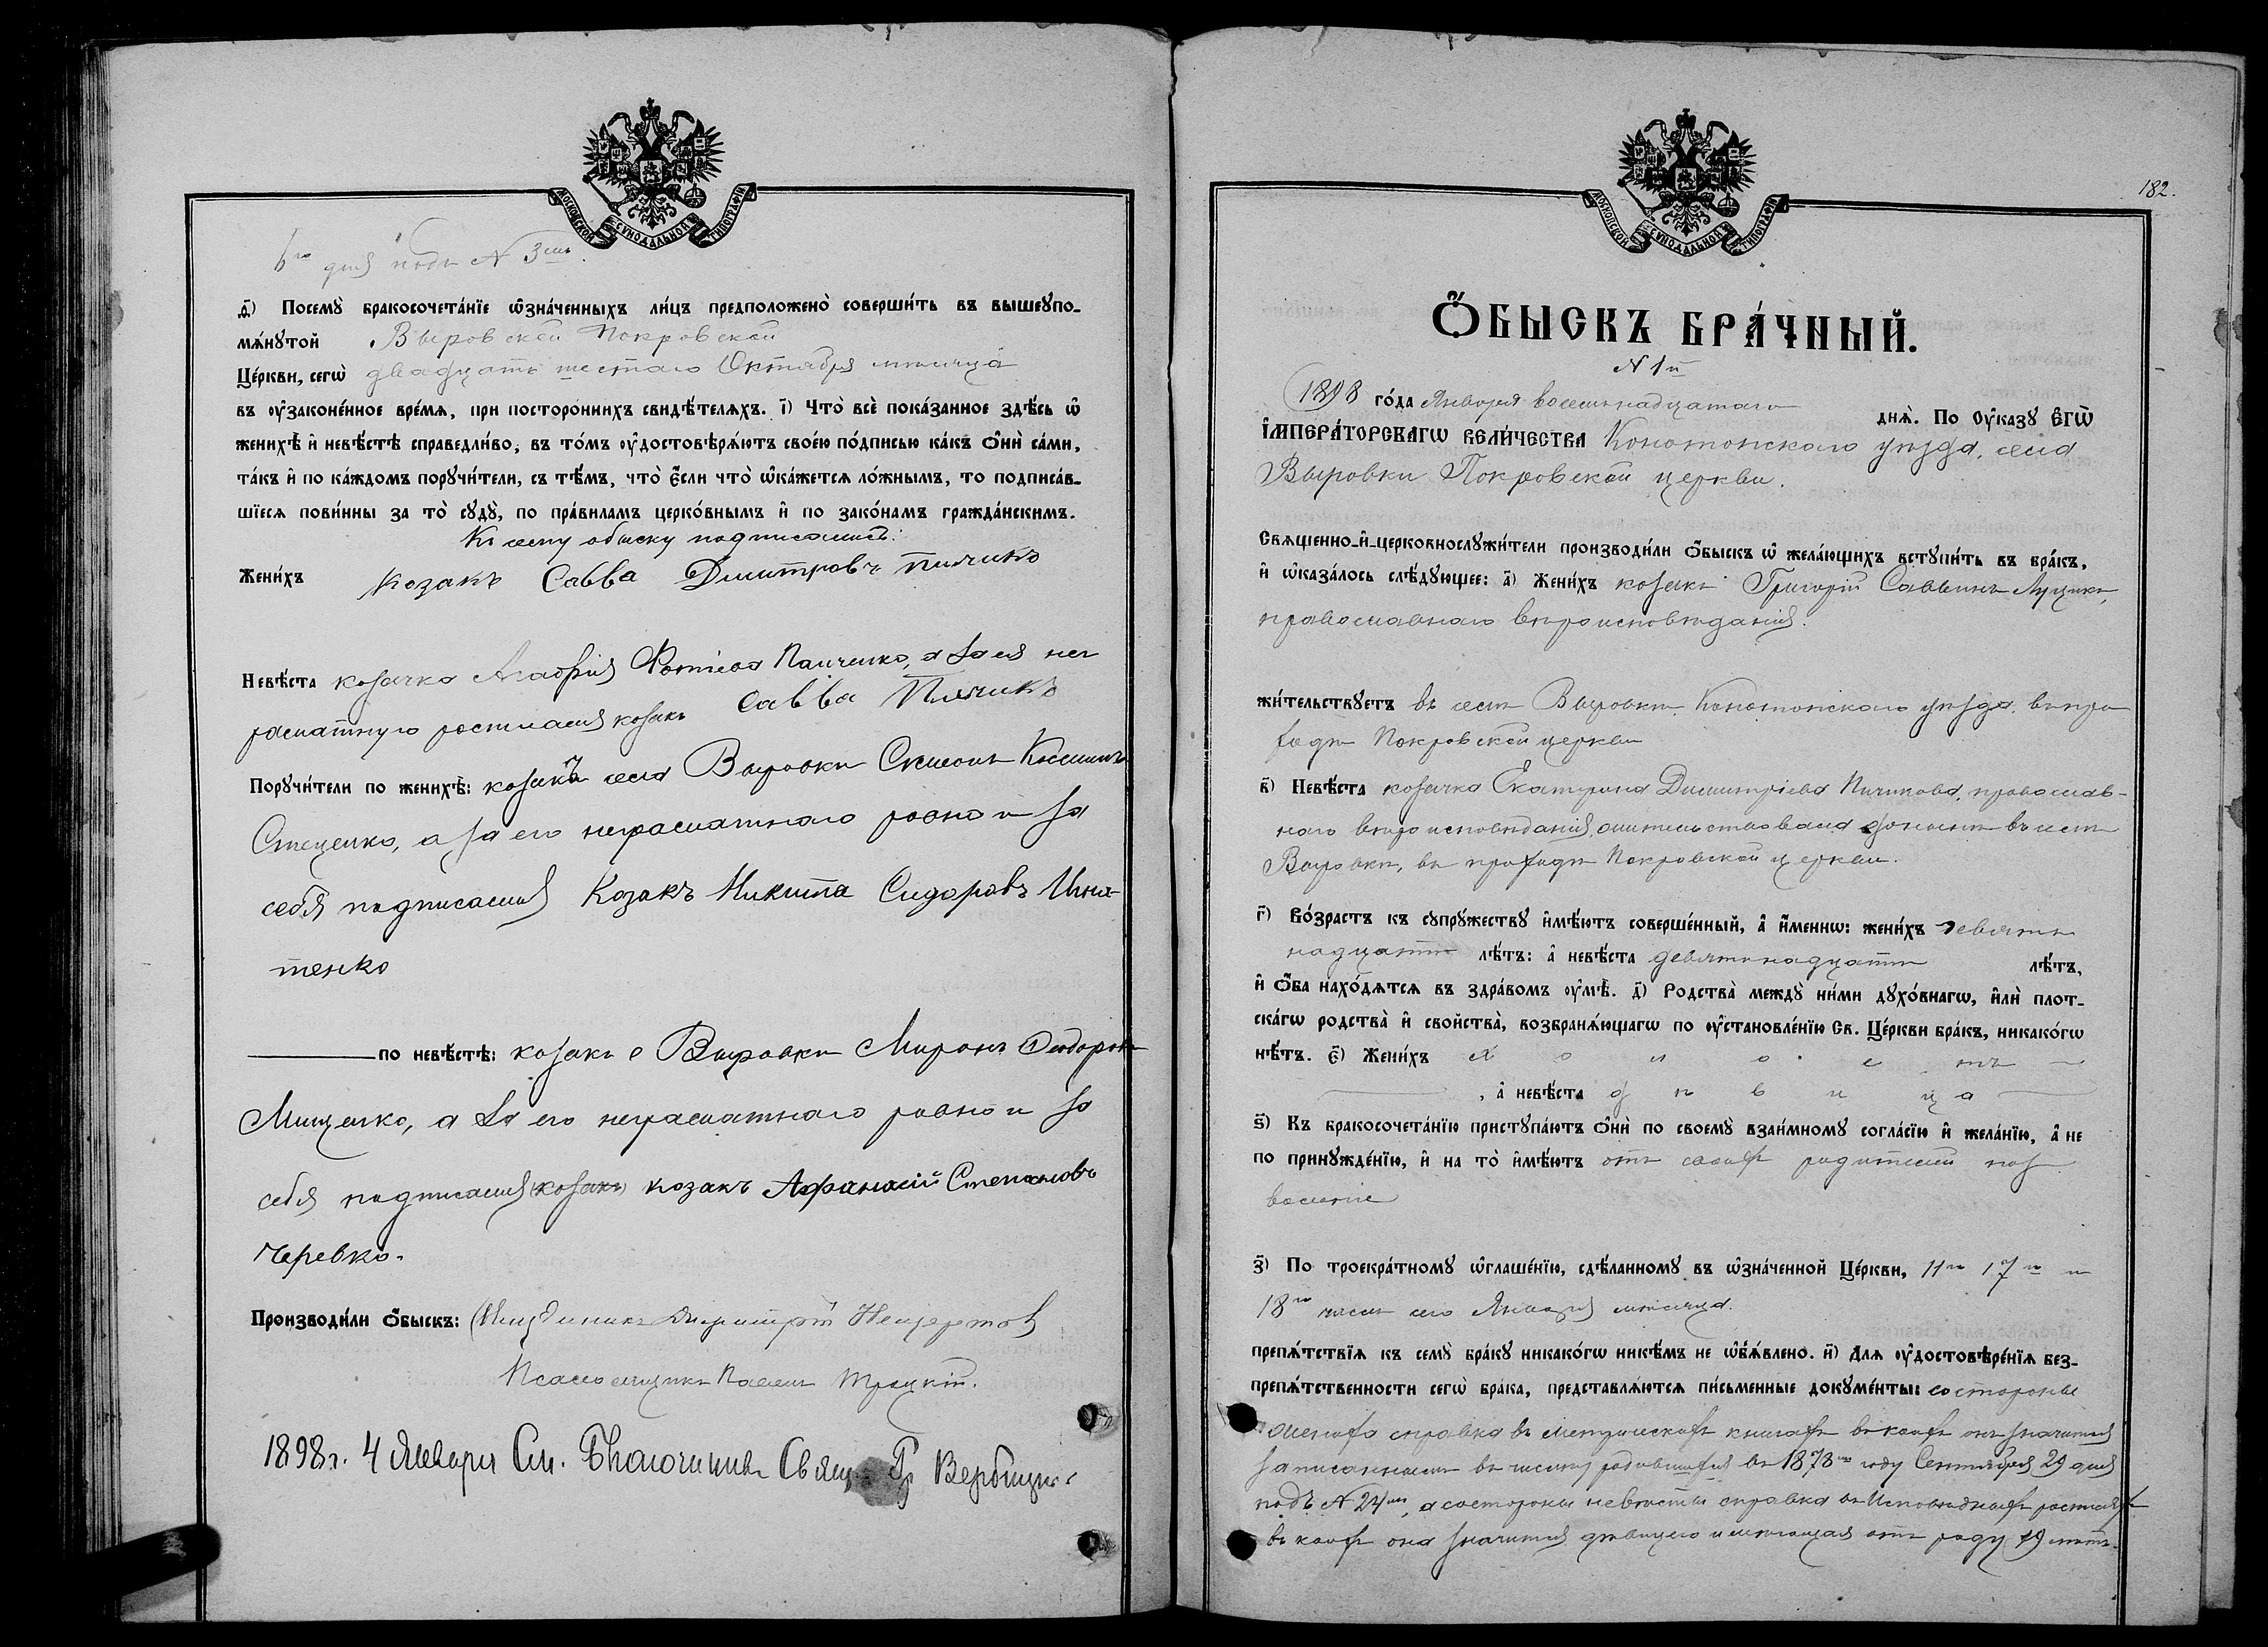 МОСКОВСКОЙ СѴНОДАЛЬНОЙ ТИПОГРАФІИ
6го дня подъ № 3мъ.
д҃) Посемꙋ̀ бракосочета́нїе ѡ҆зна́ченныхъ ли́цъ предположено̀ соверши́ть въ вышеꙋпо-
мѧ́нꙋтой Выровской Покровской
Це́ркви, сегѡ̀ двадцать шестаго Октября мѣсяца
въ ᲂу҆законе́нное вре́мѧ, при посторо́ннихъ свидѣ́телѧхъ. і҃) Что̀ всѐ пока́занное здѣ́сь ѡ҆
женихѣ̀ и҆ невѣ́стѣ справедли́во, въ то́мъ ᲂу҆достовѣрѧ́ютъ свое́ю по́дписью ка́къ ѻ҆нѝ са́ми,
та́къ и҆ по ка́ждомъ порꙋчи́тели, съ тѣ́мъ, что̀ є҆́сли что̀ ѡ҆ка́жетсѧ ло́жнымъ, то подписа́в-
шїесѧ пови́нны за то̀ сꙋдꙋ̀, по пра́виламъ церко́внымъ и҆ по зако́намъ гражда́нскимъ.
Къ сему обыску подписались:
Жени́хъ Козакъ Савва Димитровъ Пичикъ
Невѣ́ста козачка Агафія Фотіева Панченко, а за ея не
граматную росписался козакъ Савва Пичикъ
Порꙋчи́тели по женихѣ̀: козакъ села Выровки Симеонъ Косминъ
Стеценко, а за его неграматнаго ровно и за
себя подписался Козакъ Никита Сидоровъ Игна-
тенко
по невѣ́стѣ: козакъ с Выровки Миронъ Ѳеодоровъ
Мищенко, а за его неграматнаго ровно и за
себя подписался (козакъ) козакъ Афанасій Степановъ
Черевко.
Производи́ли ѻ҆́быскъ: Священникъ Димитрій
Псаломщикъ Павелъ Троцкій.
1898 г. 4 Января См. Благочинный Свящ. Гр Вербицкі
182.
МОСКОВСКОЙ СѴНОДАЛЬНОЙ ТИПОГРАФІИ
Ѻ҆́БЫСКЪ БРА́ЧНЫЙ.
№ 1й
1898 го́да Января восемнадцатаго днѧ̀. По Оу҆казꙋ Є҆ГѠ̀
І҆МПЕРА́ТОРСКАГѠ ВЕЛИ́ЧЕСТВА Конотопскаго уѣзда, села
Выровки Покровской церкви.
Свѧще́нно-и҆-церковнослꙋжи́тели производи́ли ѻ҆́быскъ ѡ҆ жела́ющихъ встꙋпи́ть въ бра́къ,
и҆ ѡ҆каза́лось слѣ́дꙋющее: а҃) Жени́хъ козакъ Григорій Саввинъ Луцикъ,
православнаго вѣроисповѣданія.
жи́тельствꙋетъ въ селѣ Выровкѣ Конотопскаго уѣзда, въ при
ходѣ Покровской церкви
в҃) Невѣ́ста козачка Екатерина Димитріева Пичикова, православ-
наго вѣроисповѣданія, жительствовала донынѣ въ селѣ
Выровкѣ, въ приходѣ Покровской церкви.
г҃) Во́зрастъ къ сꙋпрꙋ́жествꙋ и҆мѣ́ютъ соверше́нный, а҆ и҆́меннѡ: жени́хъ девят
надцати лѣ́тъ: а҆ невѣ́ста девятнадцати лѣ́тъ,
и҆ ѻ҆́ба нахо́дѧтсѧ въ здра́вомъ ᲂу҆мѣ̀. д҃) Родства̀ междꙋ̀ ни́ми дꙋхо́внагѡ, и҆лѝ плот-
ска́гѡ родства̀ и҆ свойства̀, возбранѧ́ющагѡ по ᲂу҆становле́нїю Св. Це́ркви бра́къ, никако́гѡ
нѣ́тъ. є҃) Жени́хъ х о л о с т ъ
, а҆ невѣ́ста д ѣ в и ц а
ѕ҃) Къ бракосочета́нїю пристꙋпа́ютъ ѻ҆нѝ по своемꙋ̀ взаи́мномꙋ согла́сїю и҆ жела́нїю, а҆ не
по принꙋжде́нїю, и҆ на то̀ и҆мѣ́ютъ отъ своихъ родителей поз
воленіе
з҃) По троекра́тномꙋ ѡ҆глаше́нїю, сдѣ́ланномꙋ въ ѡ҆зна́ченной Це́ркви, 11го 17го и
18го сего Января мѣсяца.
препѧ́тствїѧ къ семꙋ̀ бра́кꙋ никако́гѡ никѣ́мъ не ѡ҆б̾ѧ́влено. и҃) Длѧ ᲂу҆достовѣре́нїѧ без-
препѧ́тственности сегѡ̀ бра́ка, представлѧ́ютсѧ пи́сьменные докꙋме́нты: со стороны
жениха справка въ метрическихъ книгахъ въ коихъ онъ значится
записаннымъ въ числѣ родившихся въ 1878мъ году Сентября 29 дня
подъ № 24мъ, а со стороны невѣсты справка въ Исповѣдныхъ росписяхъ
въ коихъ она значится дѣвицею имѣющая отъ роду 19 лѣтъ.